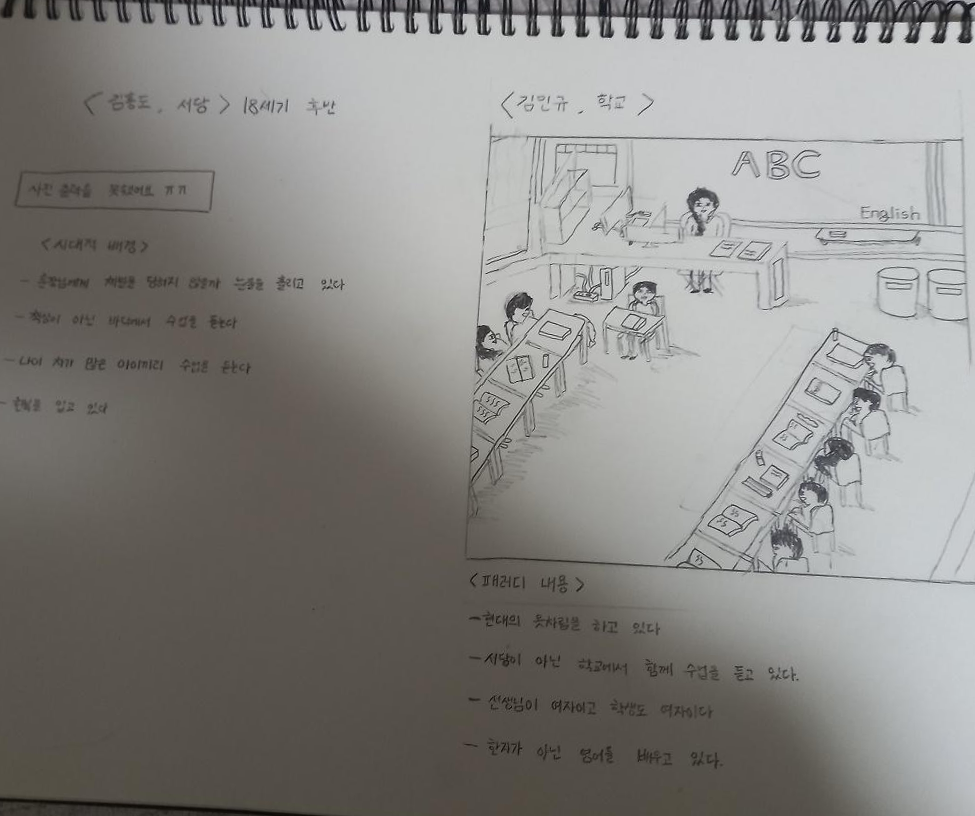 <김홍도, 서당> 18세기 후반
사진 출력을 못했어요 ㅠㅠ
<시대적 배경>
- 훈장님에게 체벌을 당하지 않을까 눈물을 흘리고 있다
- 책상이 아닌 바닥에서 수업을 듣는다
- 나이 차가 많은 아이끼리 수업을 듣는다
- 한복을 입고 있다
<김민규, 학교>
ABC
English
<패러디 내용>
- 현대의 옷차림을 하고 있다
- 서당이 아닌 학교에서 함께 수업을 듣고 있다.
- 선생님이 여자이고 학생도 여자이다
- 한자가 아닌 영어를 배우고 있다.